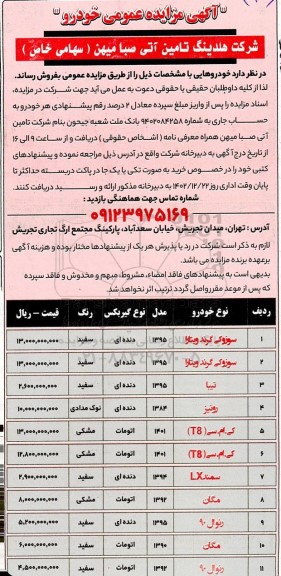 "آگهی مزایده عمومی خودرو"
شرکت هلدینگ تامین آتی صبا میهن ( سهامی خاص )
در نظر دارد خودروهایی با مشخصات ذیل را از طریق مزایده عمومی بفروش رساند.
لذا از کلیه داوطلبان حقیقی یا حقوقی دعوت به عمل می آید جهت شرکت در مزایده،
اسناد مزایده را پس از واریز مبلغ سپرده معادل ۲ درصد رقم پیشنهادی هر خودرو به
حساب جاری به شماره ۹۴۰۲۰۸۴۲۵۸ بانک ملت شعبه جیحون بنام شرکت تامین
آتی صبا میهن همراه معرفی نامه ( اشخاص حقوقی ) دریافت و از ساعت ۹ الی ۱۶
از تاریخ درج آگهی به دبیرخانه شرکت واقع در آدرس ذیل مراجعه نموده و پیشنهادهای
کتبی خود را در خصوص خرید به صورت تکی یا یک جا در پاکت دربسته حداکثر تا
پایان وقت اداری روز ۱۴۰۲/۱۲/۲۲ به دبیرخانه مذکور ارائه و رسید دریافت کنند.
شماره تماس جهت هماهنگی بازدید :
۰۹۱۲۳۹۷۵۱۶۹
آدرس : تهران، میدان تجریش، خیابان سعدآباد، پارکینگ مجتمع ارگ تجاری تجریش
لازم به ذکر است شرکت در رد یا پذیرش هر یک از پیشنهادها مختار بوده و هزینه آگهی
برعهده برنده مزایده می باشد.
بدیهی است به پیشنهادهای فاقد امضاء، مشروط، مبهم و مخدوش و فاقد سپرده
که پس از موعد مقرر واصل گردد ترتیب اثر نخواهد شد.
ردیف نوع خودرو مدل نوع گیربکس رنگ قیمت – ریال
۱ سوزوکی گرند ویتارا ۱۳۹۵ دنده ای سفید ۱۳,۰۰۰,۰۰۰,۰۰۰
۲ سوزوکی گرند ویتارا ۱۳۹۵ دنده ای سفید ۱۳,۰۰۰,۰۰۰,۰۰۰
۳ تیبا ۱۳۹۵ دنده ای سفید ۲,۶۰۰,۰۰۰,۰۰۰
۴ رونیز ۱۳۸۴ دنده ای نوک مدادی ۱۰,۰۰۰,۰۰۰,۰۰۰
۵ کی.ام.سی (T8) ۱۴۰۱ اتومات مشکی ۱۳,۰۰۰,۰۰۰,۰۰۰
۶ کی.ام.سی (T8) ۱۴۰۱ اتومات مشکی ۱۲,۸۰۰,۰۰۰,۰۰۰
۷ سمند LX ۱۳۹۴ دنده ای سفید ۲,۹۰۰,۰۰۰,۰۰۰
۸ مگان ۱۳۹۲ اتومات مشکی ۸,۰۰۰,۰۰۰,۰۰۰
۹ رنو ال ۹۰ ۱۳۹۵ دنده ای سفید ۵,۲۰۰,۰۰۰,۰۰۰
۱۰ مگان ۱۳۹۰ اتومات سفید ۶,۰۰۰,۰۰۰,۰۰۰
۱۱ رنو ال ۹۰ ۱۳۹۲ اتومات سفید ۴,۵۰۰,۰۰۰,۰۰۰